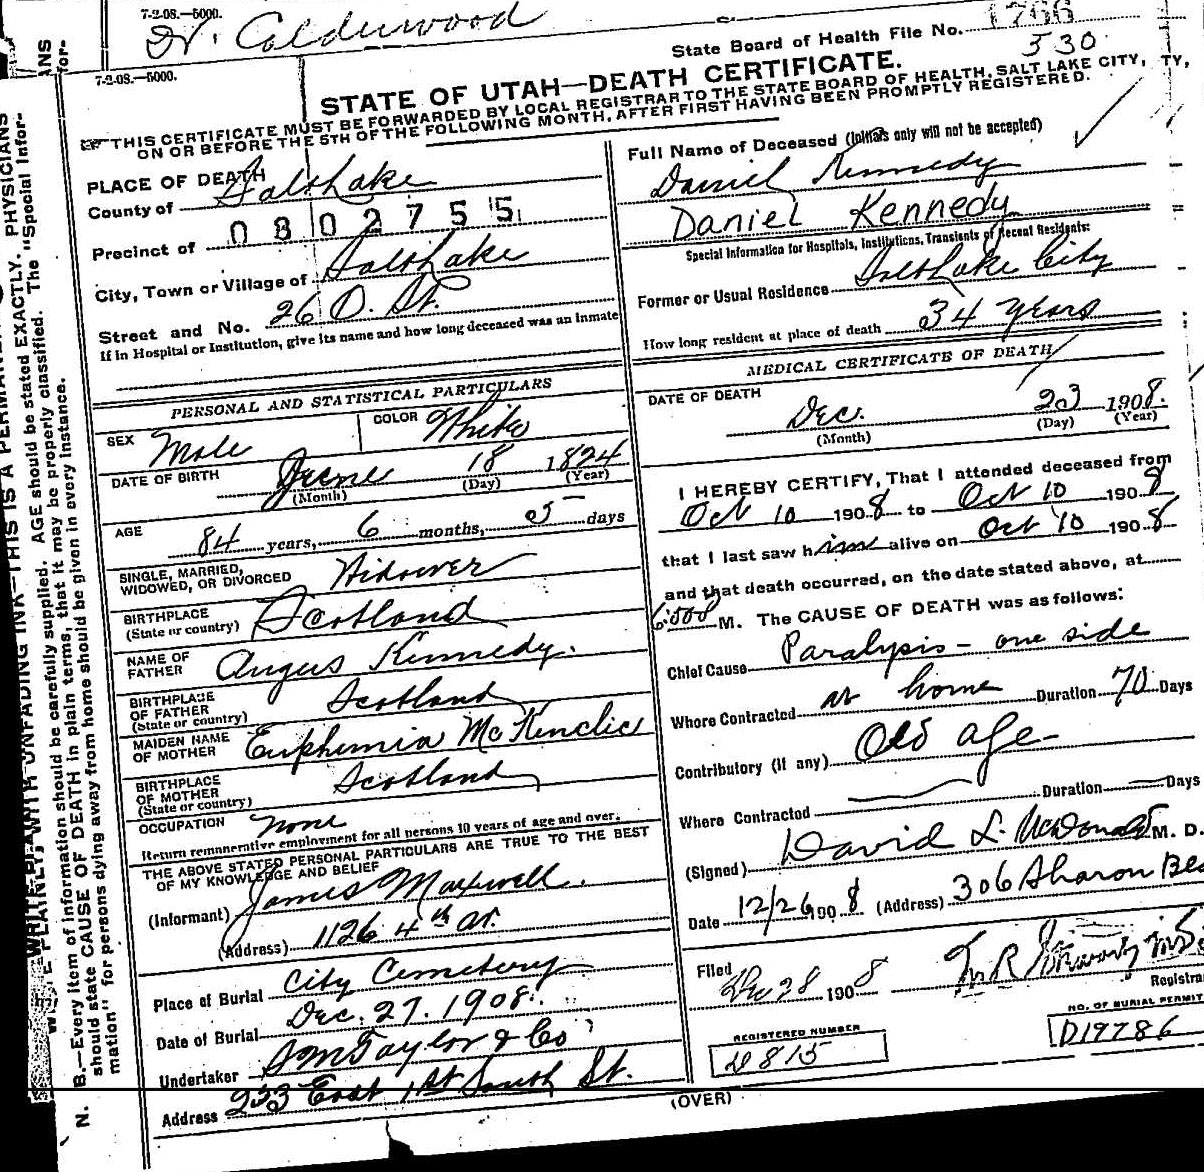 7-2-08.—5000.
Dr. Calderwood
State Board of Health File No. 1766
330
7-2-08.—5000.
STATE OF UTAH—DEATH CERTIFICATE.
THIS CERTIFICATE MUST BE FORWARDED BY LOCAL REGISTRAR TO THE STATE BOARD OF HEALTH, SALT LAKE CITY,
ON OR BEFORE THE 5TH OF THE FOLLOWING MONTH, AFTER FIRST HAVING BEEN PROMPTLY REGISTERED.
TY,
PLACE OF DEATH
County of Salt Lake
0802755
Precinct of
City, Town or Village of Salt Lake
Street and No. 26 O. St.
If in Hospital or Institution, give its name and how long deceased was an inmate
PERSONAL AND STATISTICAL PARTICULARS
SEX Male COLOR White
DATE OF BIRTH June 18 1824
(Month) (Day) (Year)
AGE 84 years, 6 months, 5 days
SINGLE, MARRIED,
WIDOWED, OR DIVORCED Widower
BIRTHPLACE
(State or country) Scotland
NAME OF
FATHER Angus Kennedy.
BIRTHPLACE
OF FATHER
(State or country) Scotland
MAIDEN NAME
OF MOTHER Euphemia McKenclie
BIRTHPLACE
OF MOTHER
(State or country) Scotland
OCCUPATION none
Return remunerative employment for all persons 10 years of age and over.
THE ABOVE STATED PERSONAL PARTICULARS ARE TRUE TO THE BEST
OF MY KNOWLEDGE AND BELIEF
(Informant) James Maxwell.
(Address) 1126 4th Av.
Place of Burial City Cemetery
Date of Burial Dec. 27. 1908.
Undertaker S M Taylor & Co
Address 253 East 1st South St.
Full Name of Deceased (Initials only will not be accepted)
Daniel Kennedy
Daniel Kennedy
Special Information for Hospitals, Institutions, Transients or Recent Residents:
Former or Usual Residence Salt Lake City
How long resident at place of death 34 years
MEDICAL CERTIFICATE OF DEATH
DATE OF DEATH
Dec. 23 1908.
(Month) (Day) (Year)
I HEREBY CERTIFY, That I attended deceased from
Oct 10 1908 to Oct 10 1908
that I last saw him alive on Oct 10 1908
and that death occurred, on the date stated above, at
M. The CAUSE OF DEATH was as follows:
Chief Cause Paralysis - one side
Where Contracted at home Duration 70 Days
Contributory (if any) Old age
Where Contracted Duration Days
(Signed) David L. McDonald M. D.
Date 12/26 1908 (Address) 306 Sharon
Filed Dec 28 1908
Registrar
REGISTERED NUMBER
D815
NO. OF BURIAL PERMIT
D19786
(OVER)
N. B.—Every item of information should be carefully supplied. AGE should be stated EXACTLY. PHYSICIANS
should state CAUSE OF DEATH in plain terms, that it may be properly classified. The "Special Infor-
mation" for persons dying away from home should be given in every instance.